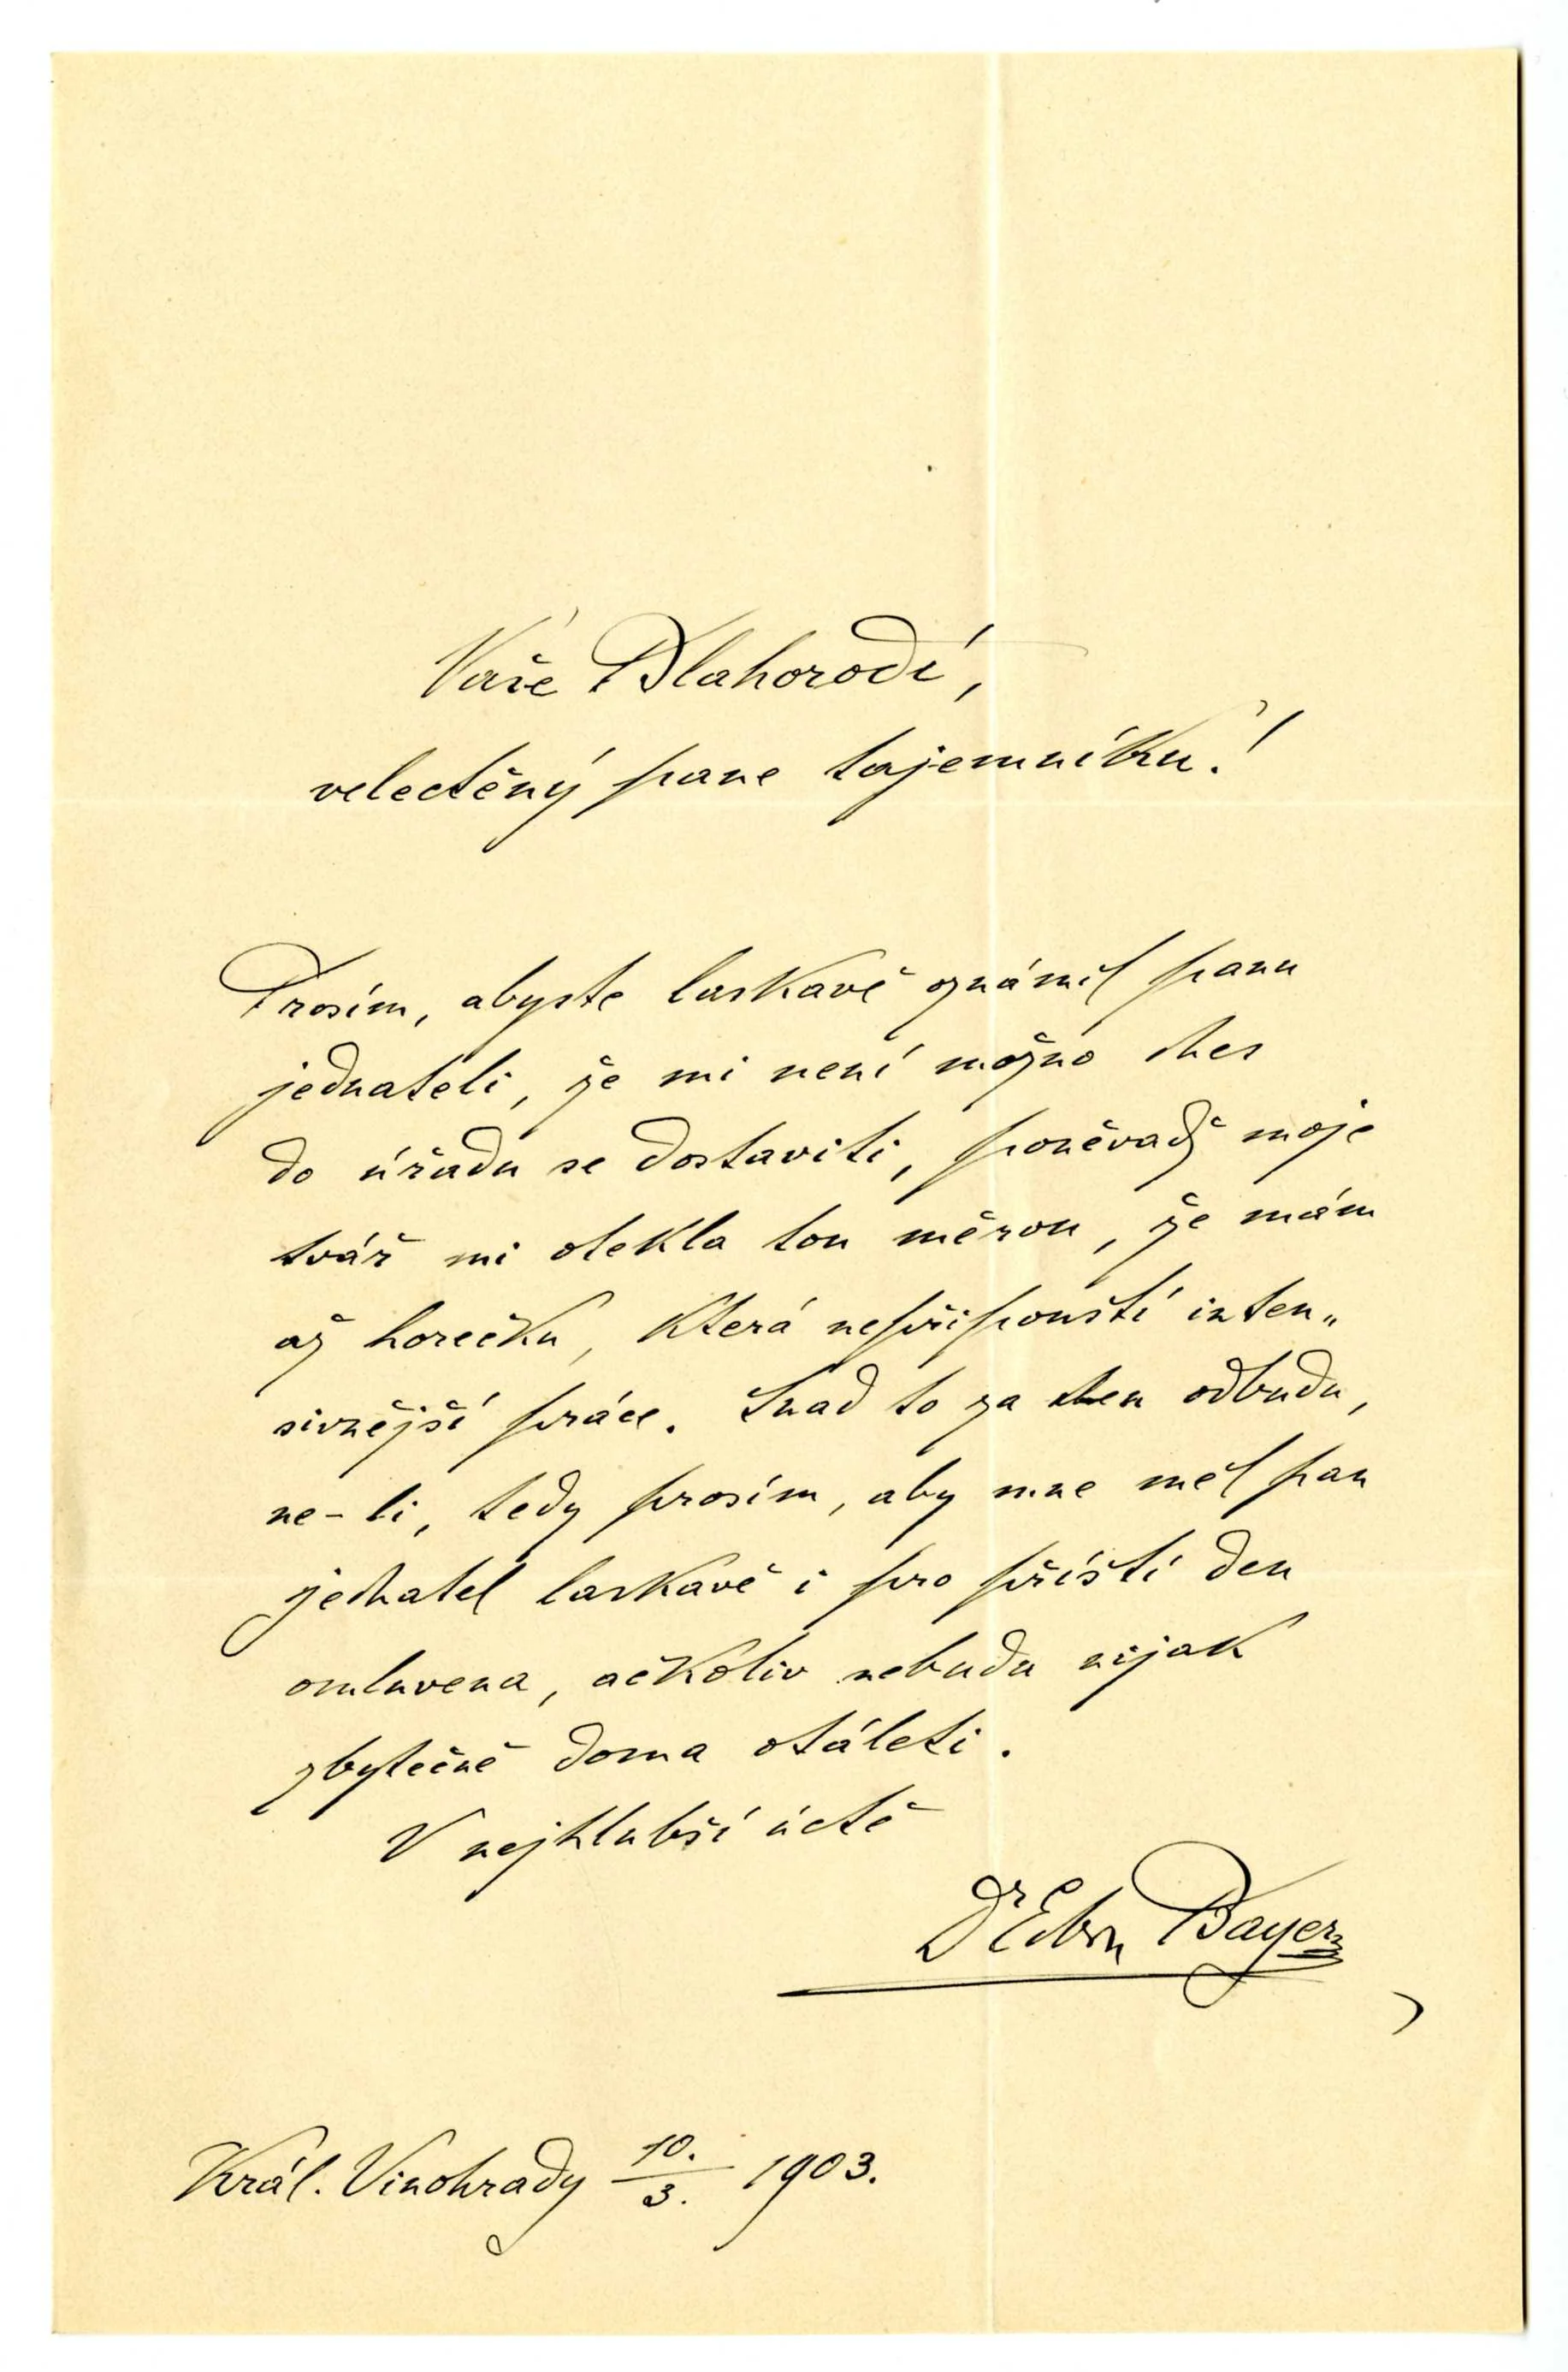 Vaše Blahorodí,
velectěný pane tajemníku!
Prosím, abyste laskavě oznámil panu
jednateli, že mi není možno dnes
do úřadu se dostaviti, poněvadž moje
tvář mi otekla tou měrou, že mám
až horečku, která nepřipouští inten„
sivnější práce. Snad to za den odbudu,
ne-li, tedy prosím, aby mne měl pan
jednatel laskavě i pro příští den
omluvena, ačkoliv nebudu nijak
zbytečně doma otáleti.
V nejhlubší úctě
Dr Edvin Bayer
Král. Vinohrady 10./3. 1903.